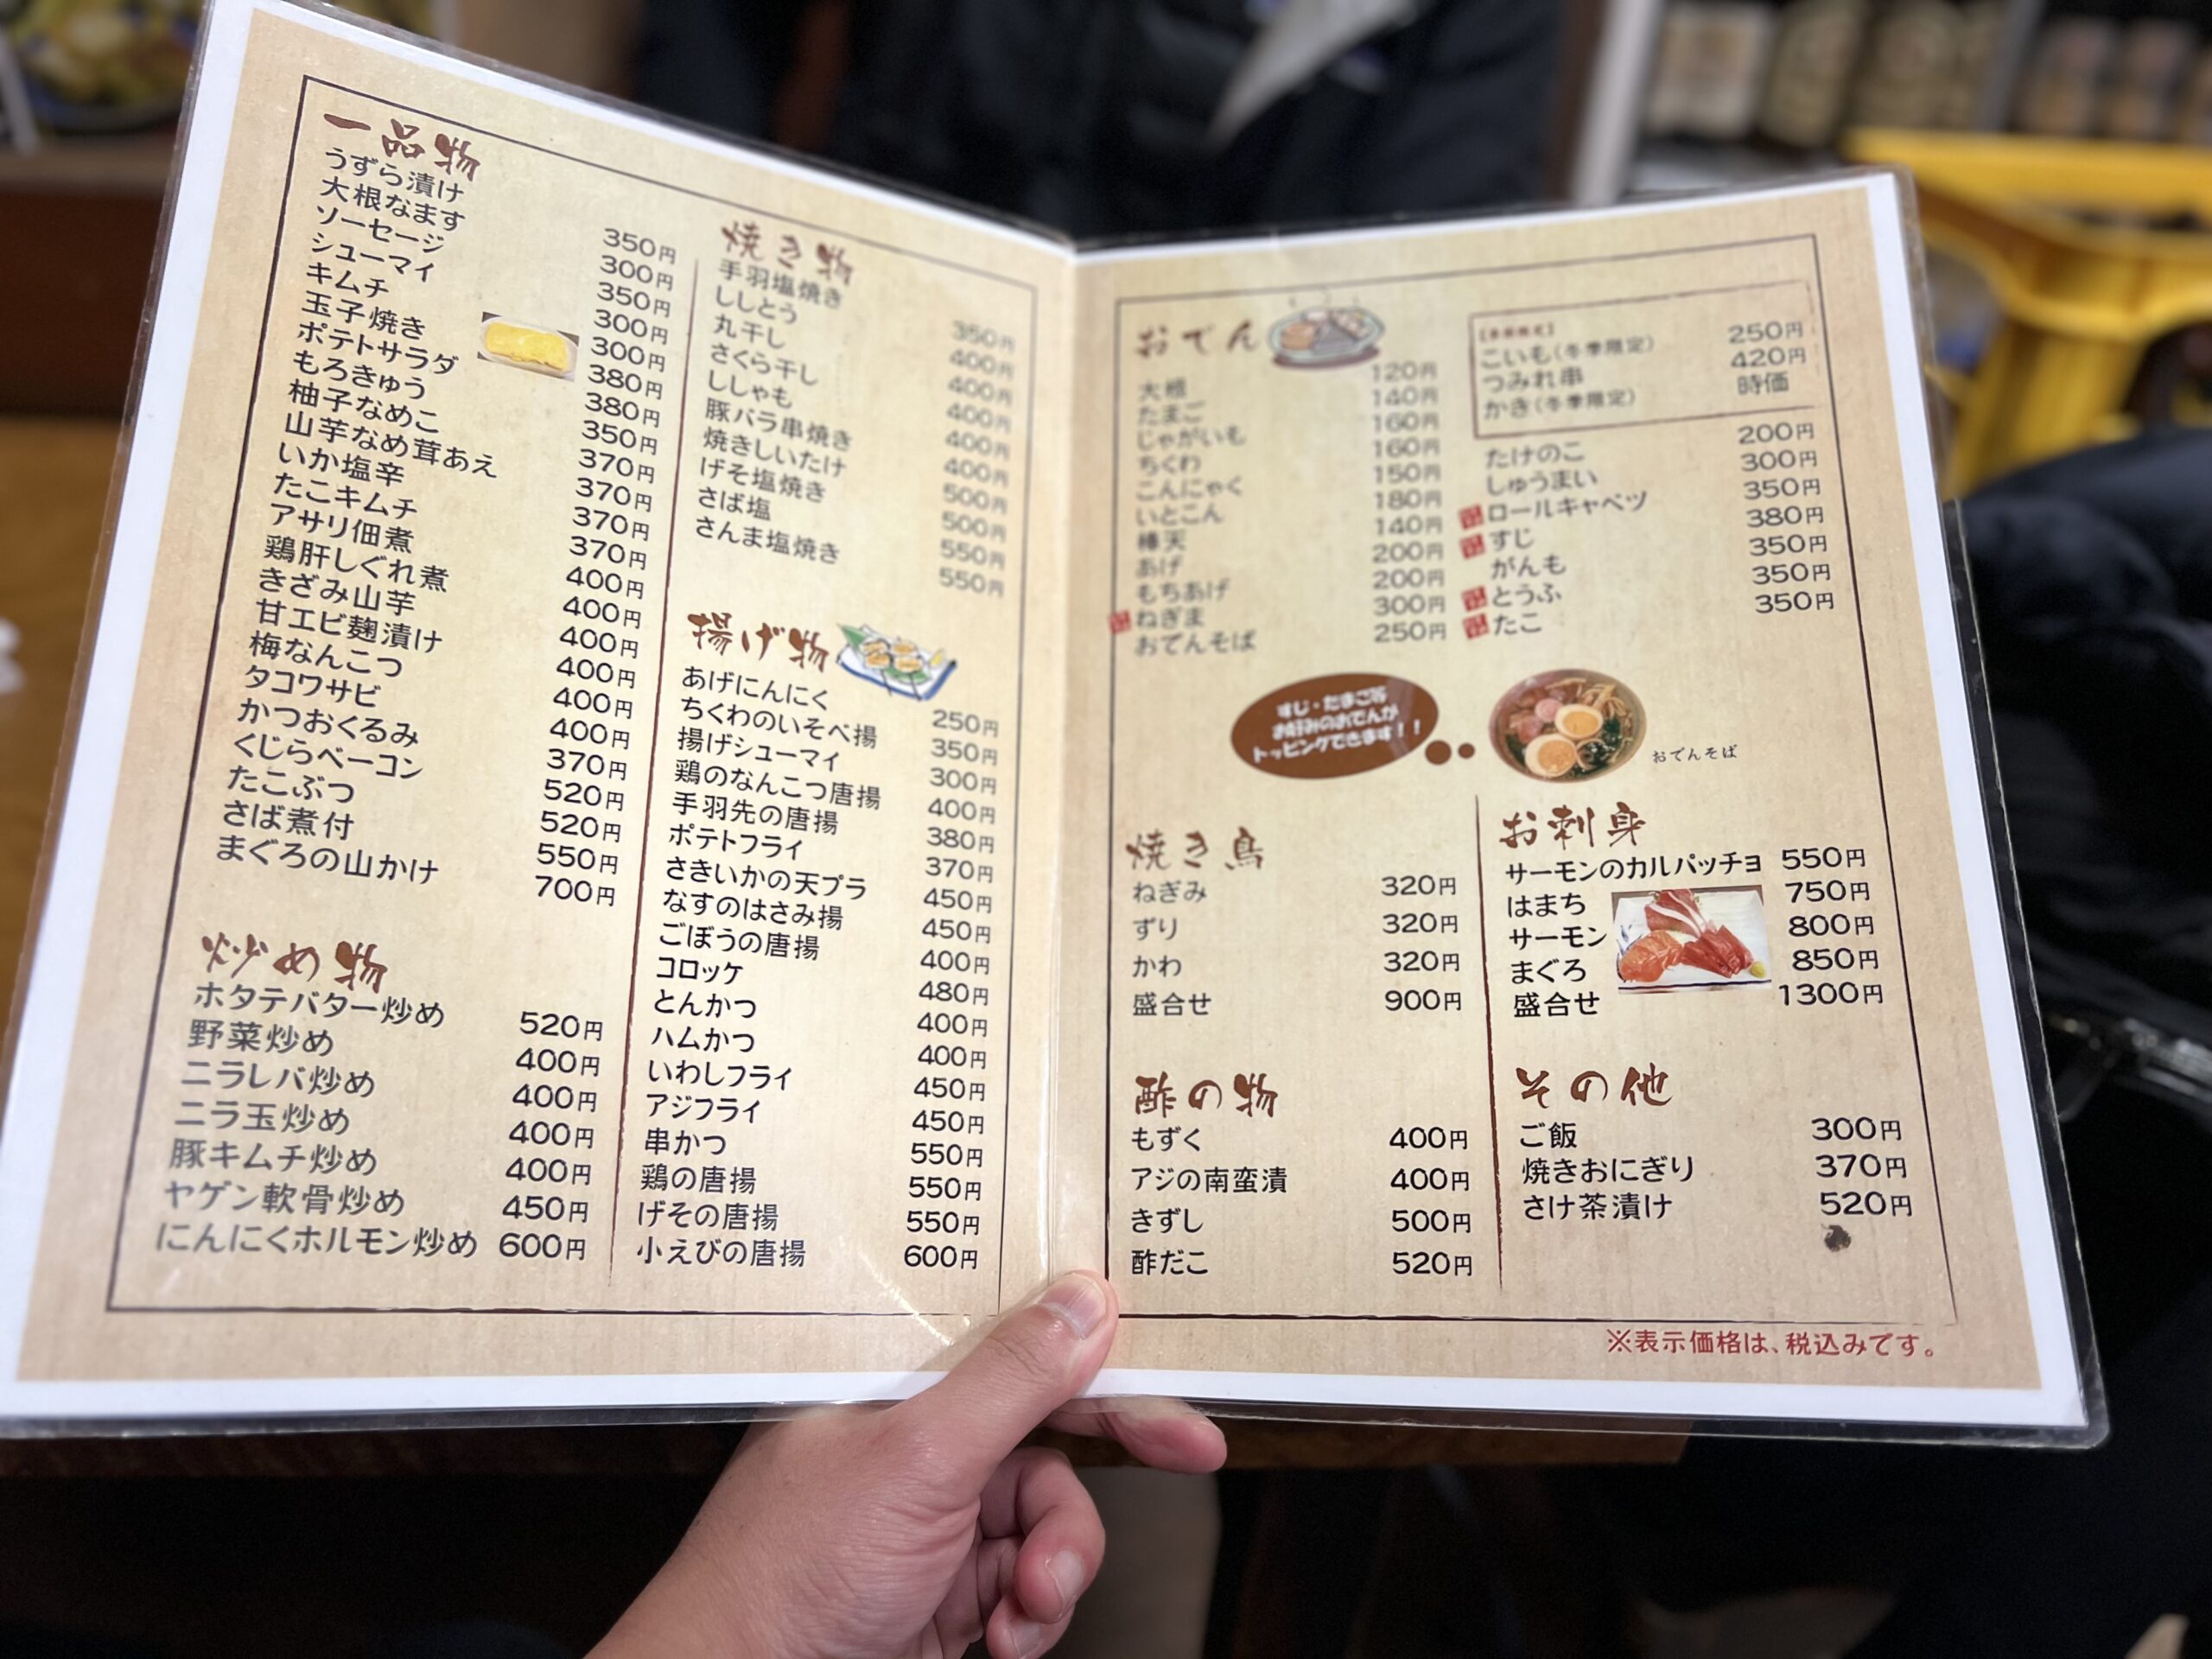 一品物
うずら漬け 350円
大根なます 300円
ソーセージ 350円
シューマイ 300円
キムチ 300円
玉子焼き 380円
ポテトサラダ 380円
もろきゅう 350円
柚子なめこ 370円
山芋なめ茸あえ 370円
いか塩辛 370円
たこキムチ 370円
アサリ佃煮 400円
鶏肝しぐれ煮 400円
きざみ山芋 400円
甘エビ麹漬け 400円
梅なんこつ 400円
タコワサビ 400円
かつおくるみ 370円
くじらベーコン 520円
たこぶつ 520円
さば煮付 550円
まぐろの山かけ 700円
炒め物
ホタテバター炒め 520円
野菜炒め 400円
ニラレバ炒め 400円
ニラ玉炒め 400円
豚キムチ炒め 400円
ヤゲン軟骨炒め 450円
にんにくホルモン炒め 600円
焼き物
手羽塩焼き 350円
ししとう 400円
丸干し 400円
さくら干し 400円
ししゃも 400円
豚バラ串焼き 400円
焼きしいたけ 500円
げそ塩焼き 500円
さば塩 550円
さんま塩焼き 550円
揚げ物
あげにんにく 250円
ちくわのいそべ揚 350円
揚げシューマイ 300円
鶏のなんこつ唐揚 400円
手羽先の唐揚 380円
ポテトフライ 370円
さきいかの天プラ 450円
なすのはさみ揚 450円
ごぼうの唐揚 400円
コロッケ 480円
とんかつ 400円
ハムかつ 400円
いわしフライ 450円
アジフライ 450円
串かつ 550円
鶏の唐揚 550円
げその唐揚 550円
小えびの唐揚 600円
おでん
大根 120円
たまご 140円
じゃがいも 160円
ちくわ 160円
こんにゃく 150円
いとこん 180円
棒天 140円
あげ 200円
もちあげ 200円
ねぎま 300円
おでんそば 250円
こいも(冬季限定) 250円
つみれ串 420円
かき(冬季限定) 時価
たけのこ 200円
しゅうまい 300円
ロールキャベツ 350円
すじ 380円
がんも 350円
とうふ 350円
たこ 350円
すじ・たまご等
お好みのおでんが
トッピングできます!!
おでんそば
焼き鳥
ねぎみ 320円
ずり 320円
かわ 320円
盛合せ 900円
酢の物
もずく 400円
アジの南蛮漬 400円
きずし 500円
酢だこ 520円
お刺身
サーモンのカルパッチョ 550円
はまち 750円
サーモン 800円
まぐろ 850円
盛合せ 1300円
その他
ご飯 300円
焼きおにぎり 370円
さけ茶漬け 520円
※表示価格は、税込みです。